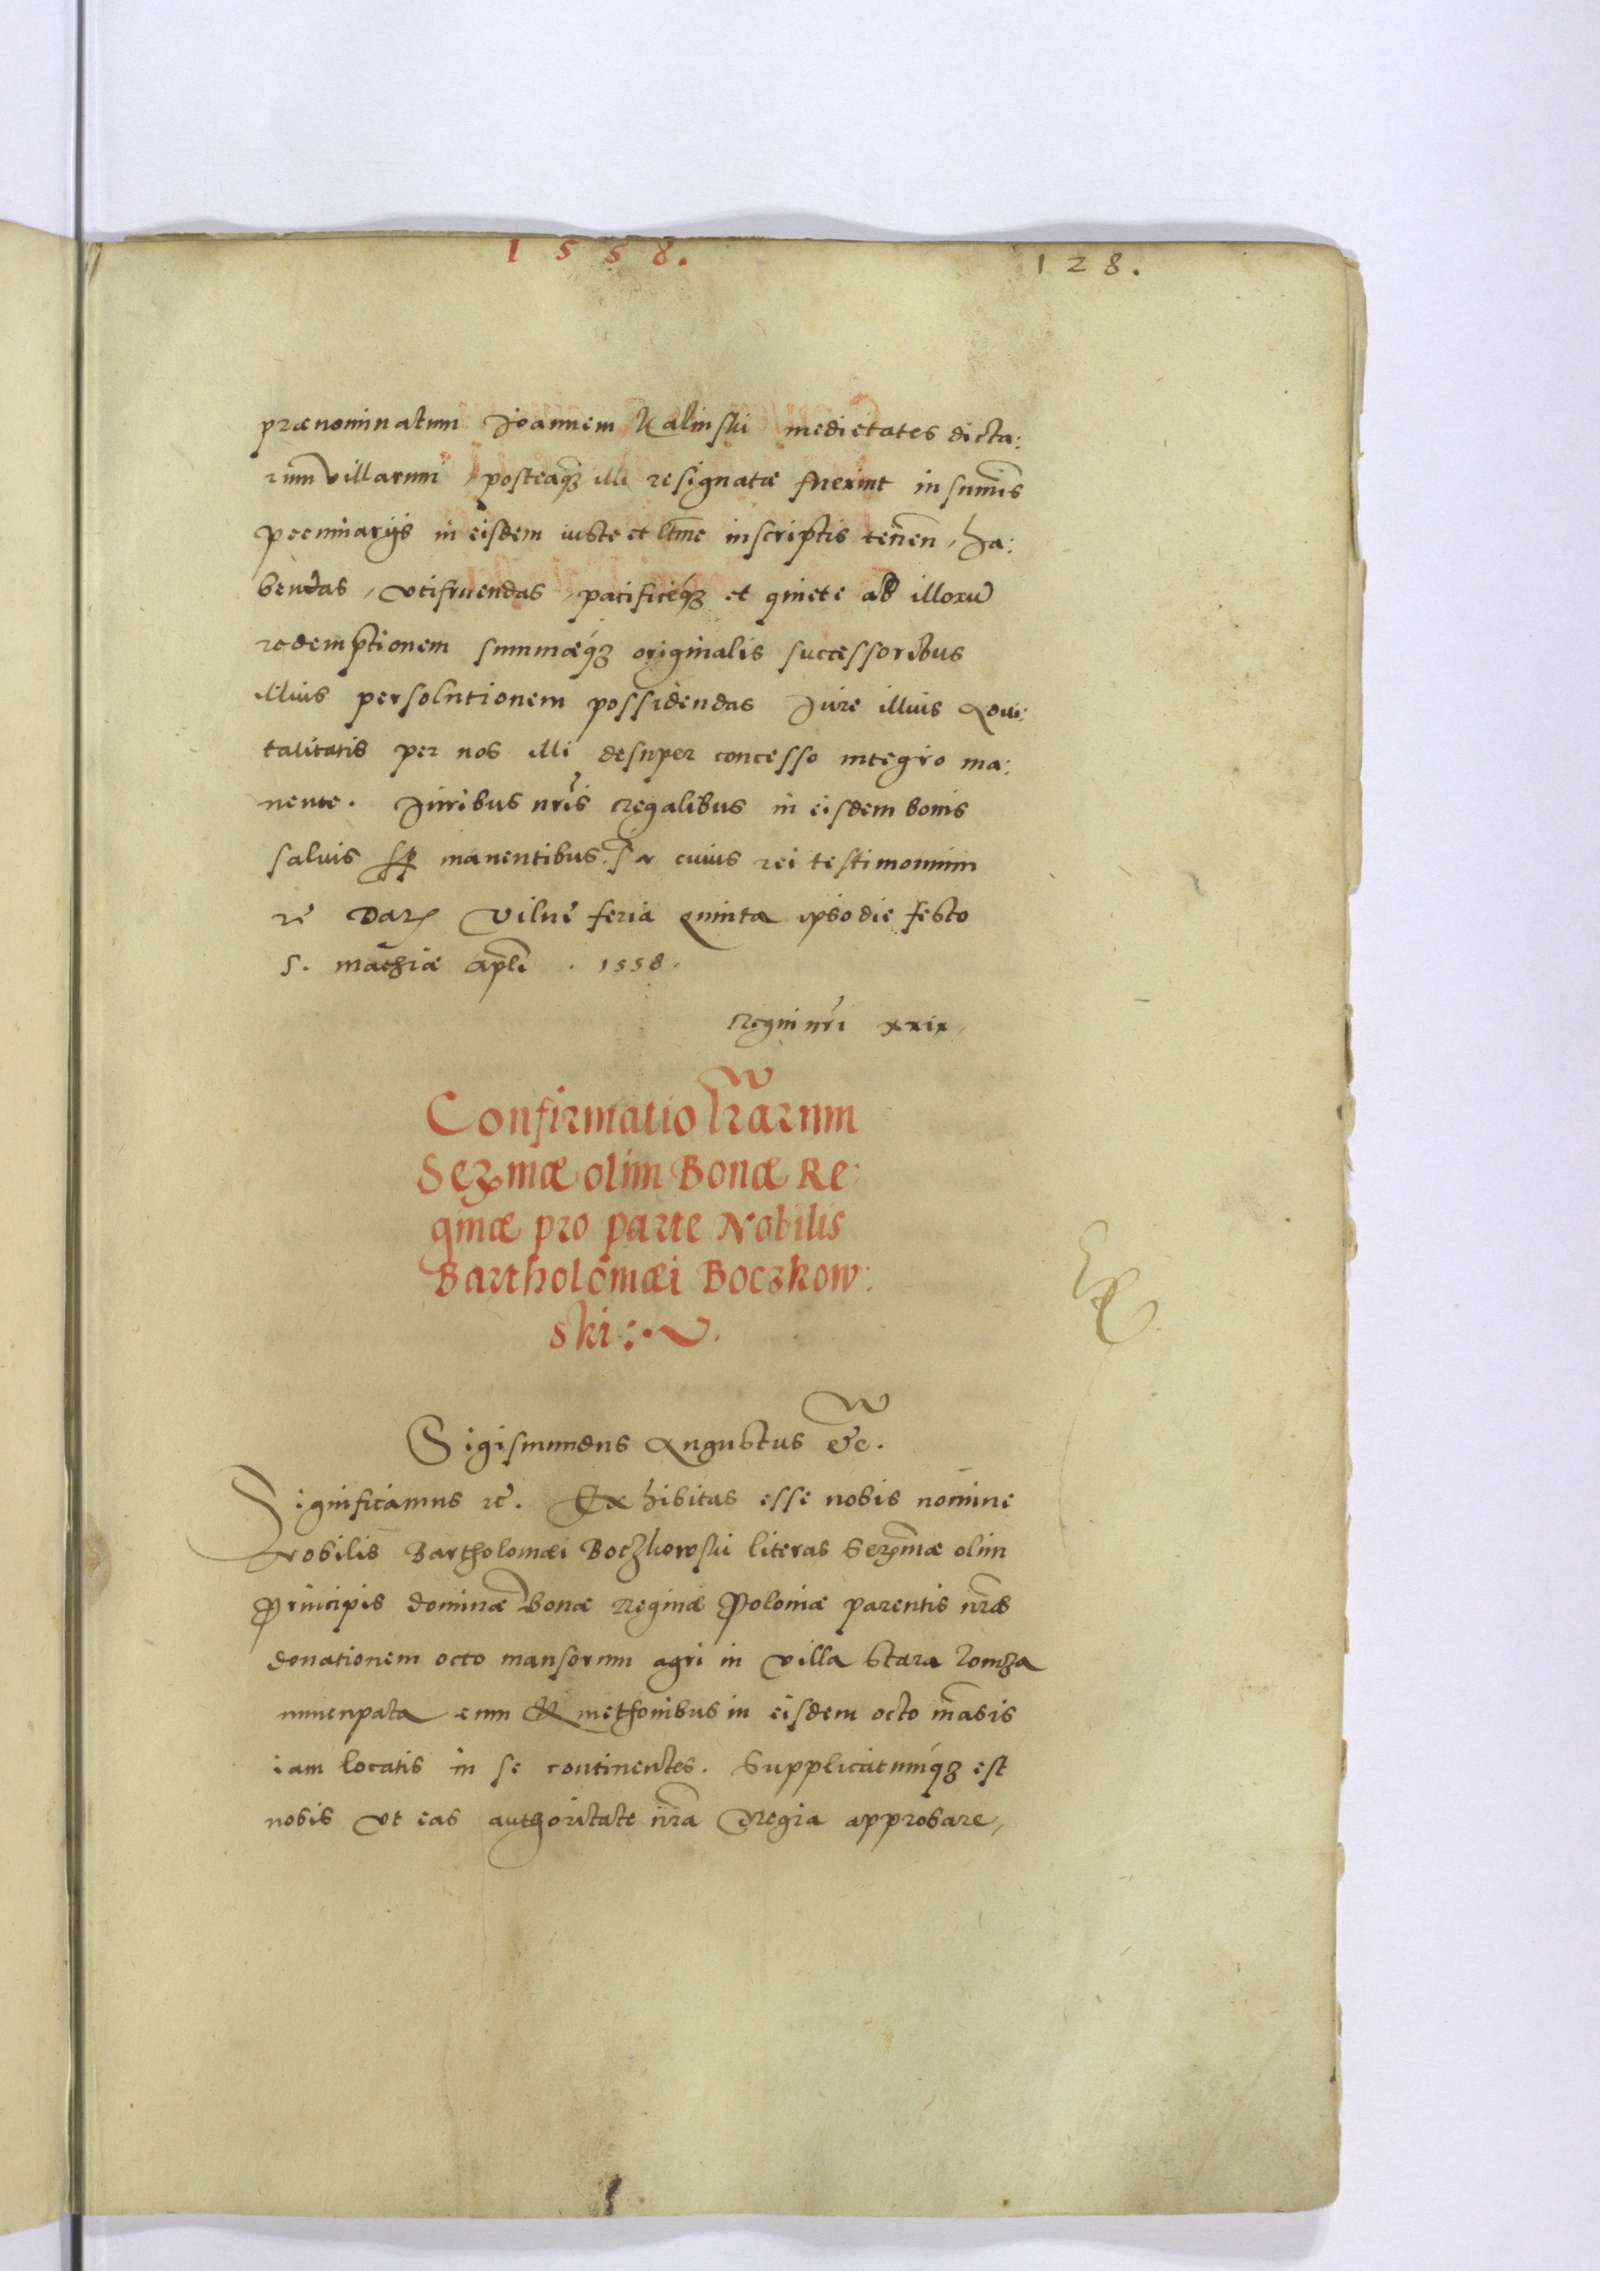 1558.
128.
prænominatum Joannem Kalinski medietates dicta:
rum villarum posteaq̃ illi resignatæ fuerint in sum̃is
pecuniarijs in eisdem iuste et ltĩme inscriptis teñen, ha:
bendas, vtifruendas, pacificeq́ʒ et quiete ad illoru̅
redemptionem summæq́ʒ originalis successoribus
illius persolutionem possidendas Jure illius Advi:
talitatis per nos illi desuper concesso integro ma:
nente. Juribus nr̃is Regalibus in eisdem bonis
saluis sp̱ manentibus. In cuius rei testimonium
etc̃ Dat Vilnę feria quinta ipso die festo
S. Mathiæ apłi. 1558.
Regni nr̃i xxix.
Confirmatio lr̃arum
Serꝫmæ olim Bonæ Re:
ginæ pro parte Nobilis
Bartholomæi Boczkow:
ski
Sigismundus Augustus etc̃.
Significamus etc̃. Exhibitas esse nobis nomine
Nobilis Bartholomæi Boczkowski literas Serꝫmæ olim
Principis dominæ Bonæ Reginæ Poloniæ parentis nr̃æ
donationem octo mansorum agri in villa Stara Lomza
nuncupata cum Kmethonibus in eisdem octo mãsis
iam locatis in se continentes. Supplicatumq́ʒ est
nobis vt eas authoritate nr̃a Regia approbare,